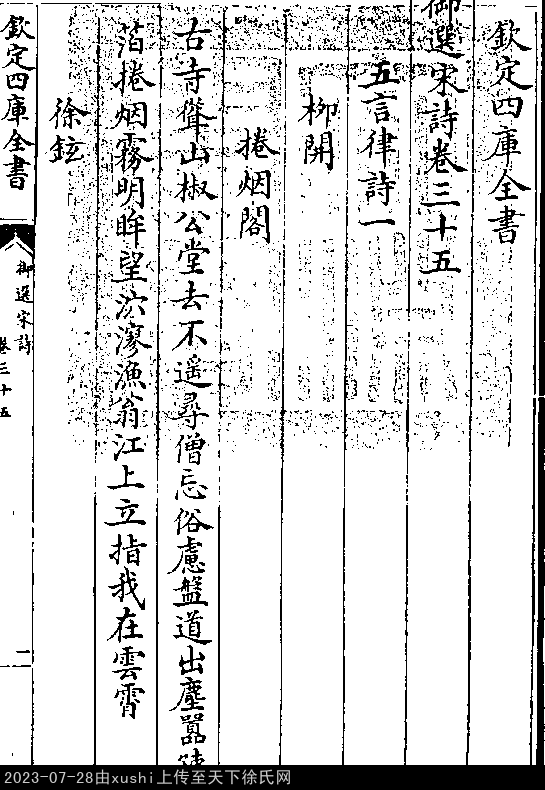 欽定四庫全書
御選宋詩卷三十五
五言律詩一
柳開
捲烟閣
古寺聳山椒公堂去不遥尋僧忘俗慮盤道出塵囂
箔捲烟霧明眸望泬寥漁翁江上立指我在雲霄
徐鉉
欽定四庫全書
御選宋詩
卷三十五
二
2023-07-28由xushi上传至天下徐氏网